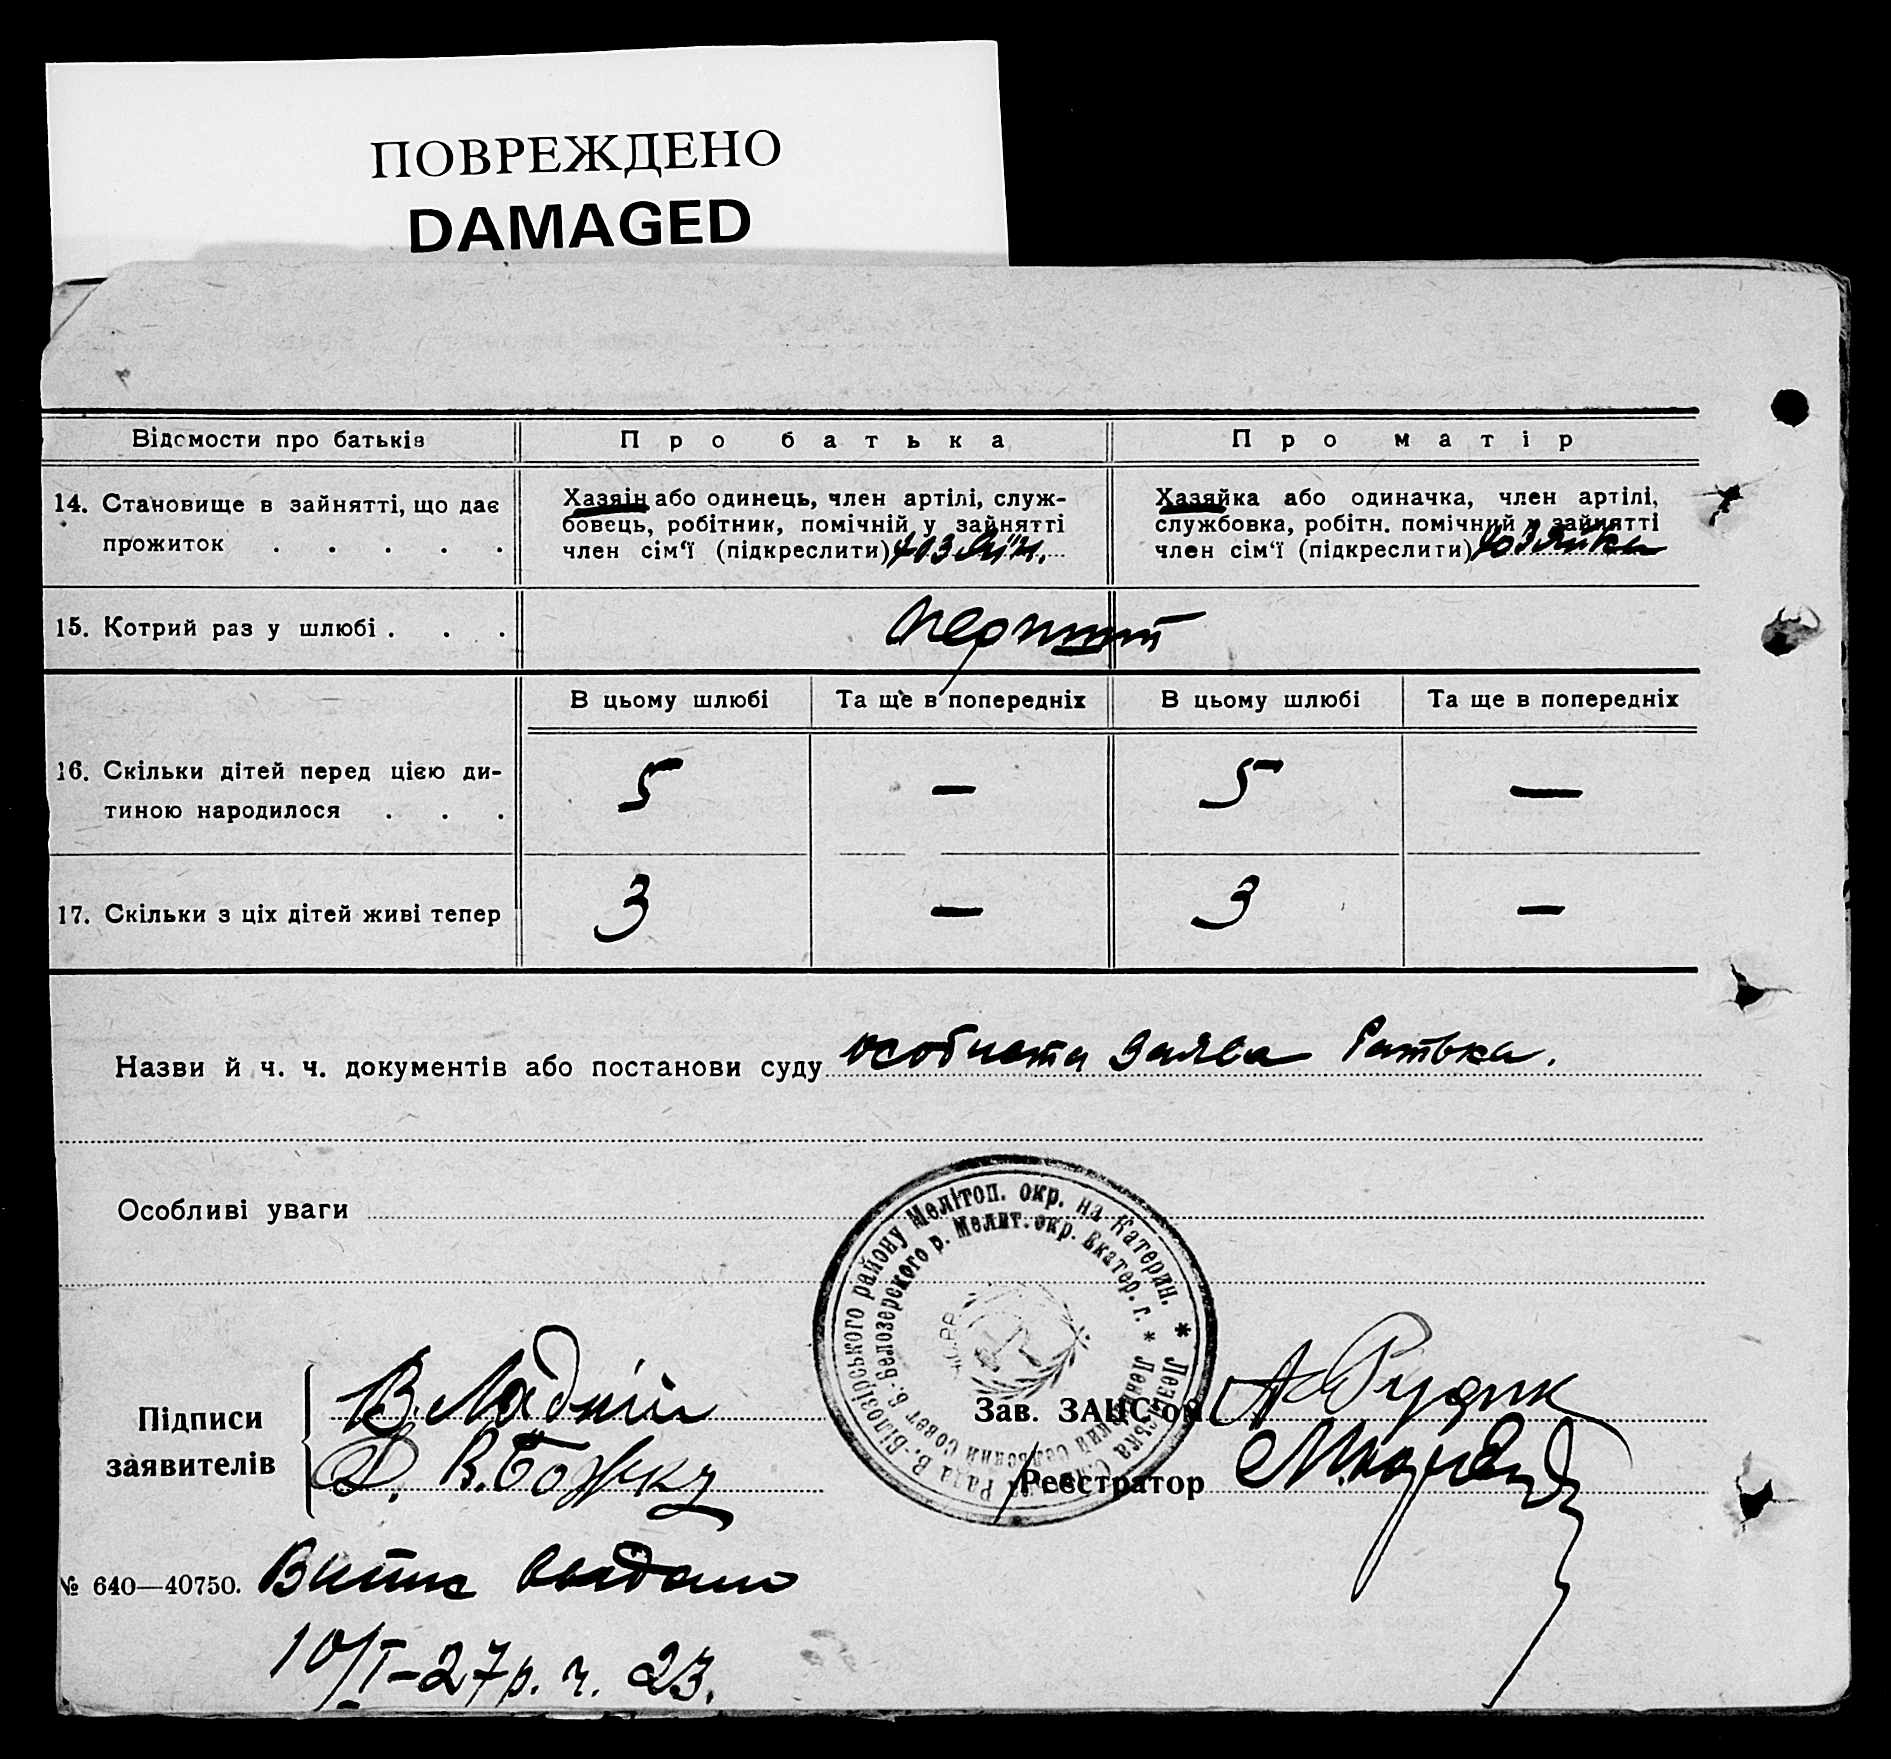 ПОВРЕЖДЕНО
DAMAGED
Відомости про батьків
Про батька
Про матір
14. Становище в зайнятті, що дає
прожиток . . . . .
Хазяїн або одинець, член артілі, служ-
бовець, робітник, помічний у зайнятті
член сім'ї (підкреслити) хозяїн.
Хазяйка або одиначка, член артілі,
службовка, робітн. помічний у зайнятті
член сім'ї (підкреслити) хозяйка
15. Котрий раз у шлюбі . . .
перший
В цьому шлюбі
Та ще в попередніх
В цьому шлюбі
Та ще в попередніх
16. Скільки дітей перед цією ди-
тиною народилося . . .
5 — 5 —
17. Скільки з ціх дітей живі тепер
3 — 3 —
Назви й ч. ч. документів або постанови суду особиста заява батька.
Особливі уваги
Рада В.-Білозірського району Мелітоп. окр. на Катерин. *
Совет В.-Белозерского р. Мелит. окр. Екатер. г. *
Підписи
заявителів
В. Ладній
Д. В. Божко
Зав. ЗАГС'ом А. Рудик
Реєстратор
№ 640—40750. Витяг выдано
10/I–27 р. ч. 23.